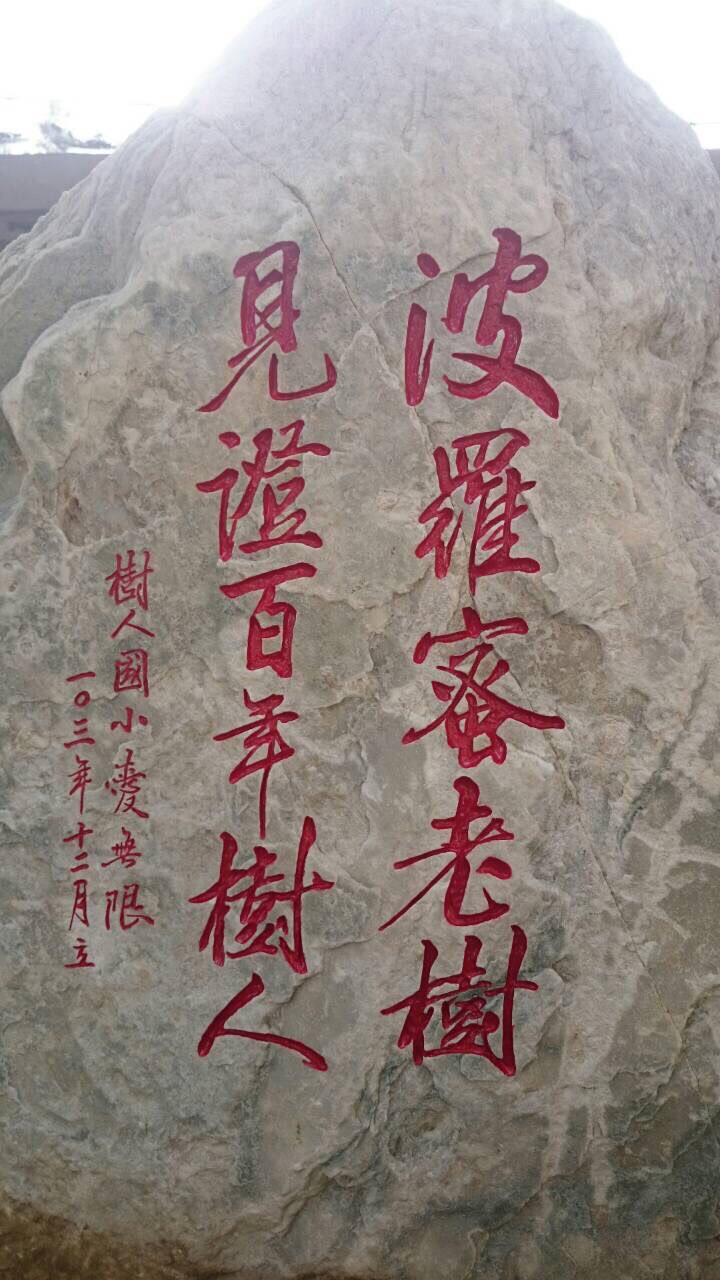 波羅蜜老樹
見證百年樹人
樹人國小愛無限
一〇三年十二月立